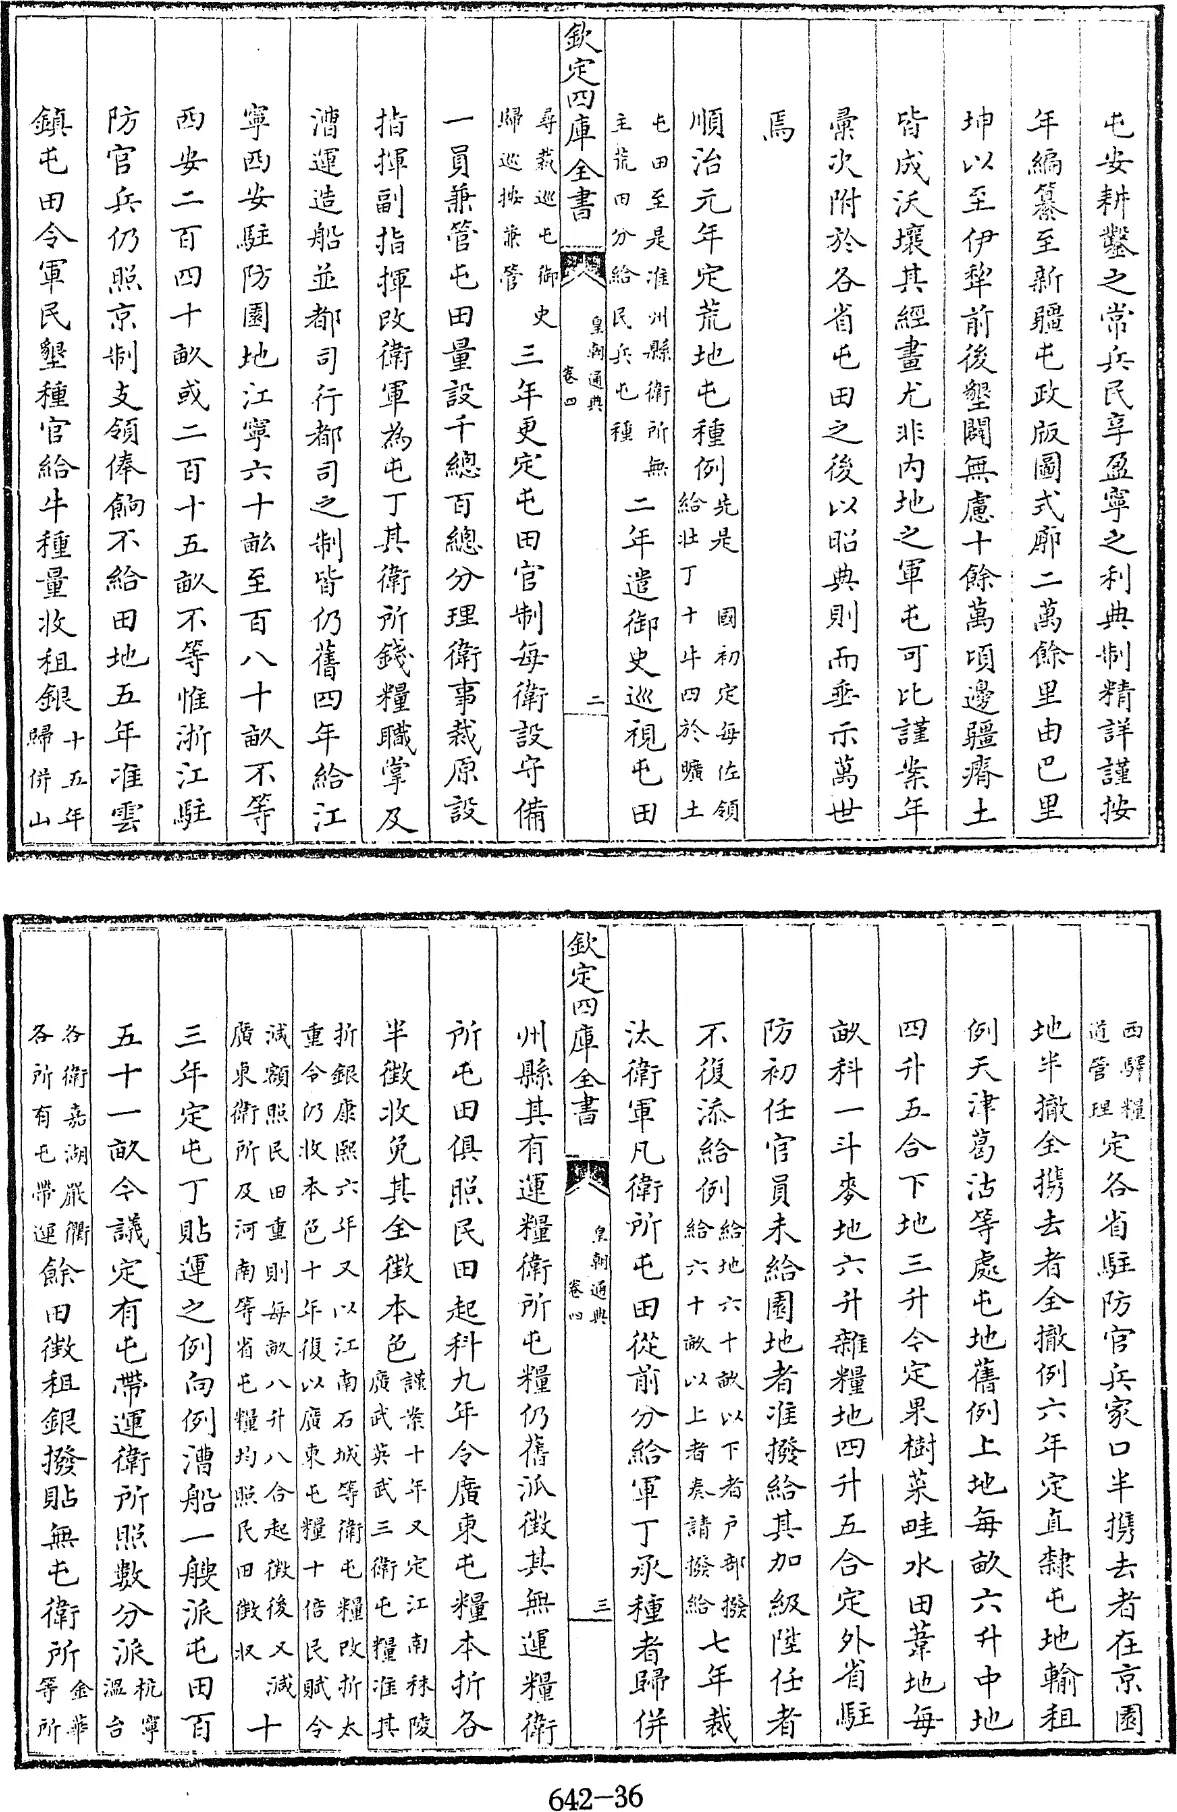 屯安耕鑿之常兵民享盈寧之利典制精詳謹按
年編纂至新疆屯政版圖式廓二萬餘里由巴里
坤以至伊犂前後墾闢無慮十餘萬頃邊疆瘠土
皆成沃壤其經畫尤非内地之軍屯可比謹案年
彙次附於各省屯田之後以昭典則而垂示萬世
焉
順治元年定荒地屯種例先是國初定每佐領
給壯丁十牛四於曠土
屯田至是准州縣衛所無
主荒田分給民兵屯種二年遣御史巡視屯田
欽定四庫全書
皇朝通典
卷四
二
尋裁巡屯御史
歸巡按兼管三年更定屯田官制每衛設守備
一員兼管屯田量設千總百總分理衛事裁原設
指揮副指揮改衛軍為屯丁其衛所錢糧職掌及
漕運造船並都司行都司之制皆仍舊四年給江
寧西安駐防園地江寧六十畝至百八十畝不等
西安二百四十畝或二百十五畝不等惟浙江駐
防官兵仍照京制支領俸餉不給田地五年准雲
鎮屯田令軍民墾種官給牛種量收租銀十五年
歸併山
西驛糧
道管理定各省駐防官兵家口半攜去者在京園
地半撤全攜去者全撤例六年定直隸屯地輸租
例天津葛沽等處屯地舊例上地每畝六升中地
四升五合下地三升今定果樹菜畦水田葦地每
畝科一斗麥地六升雜糧地四升五合定外省駐
防初任官員未給園地者准撥給其加級陞任者
不復添給例給地六十畝以下者户部撥
給六十畝以上者奏請撥給七年裁
汰衛軍凡衛所屯田從前分給軍丁承種者歸併
欽定四庫全書
皇朝通典
卷四
三
州縣其有運糧衛所屯糧仍舊派徵其無運糧衛
所屯田俱照民田起科九年令廣東屯糧本折各
半徵收免其全徵本色謹案十年又定江南秣陵
廣武英武三衛屯糧准其
折銀康熙六年又以江南石城等衛屯糧改折太
重令仍收本色十年復以廣東屯糧十倍民賦令
減額照民田重則每畝八升八合起徵後又減
廣東衛所及河南等省屯糧均照民田徵収十
三年定屯丁貼運之例向例漕船一艘派屯田百
五十一畝今議定有屯帶運衛所照數分派杭寧
溫台
各衛嘉湖嚴衢
各所有屯帶運餘田徵租銀撥貼無屯衛所金華
等所
642-36